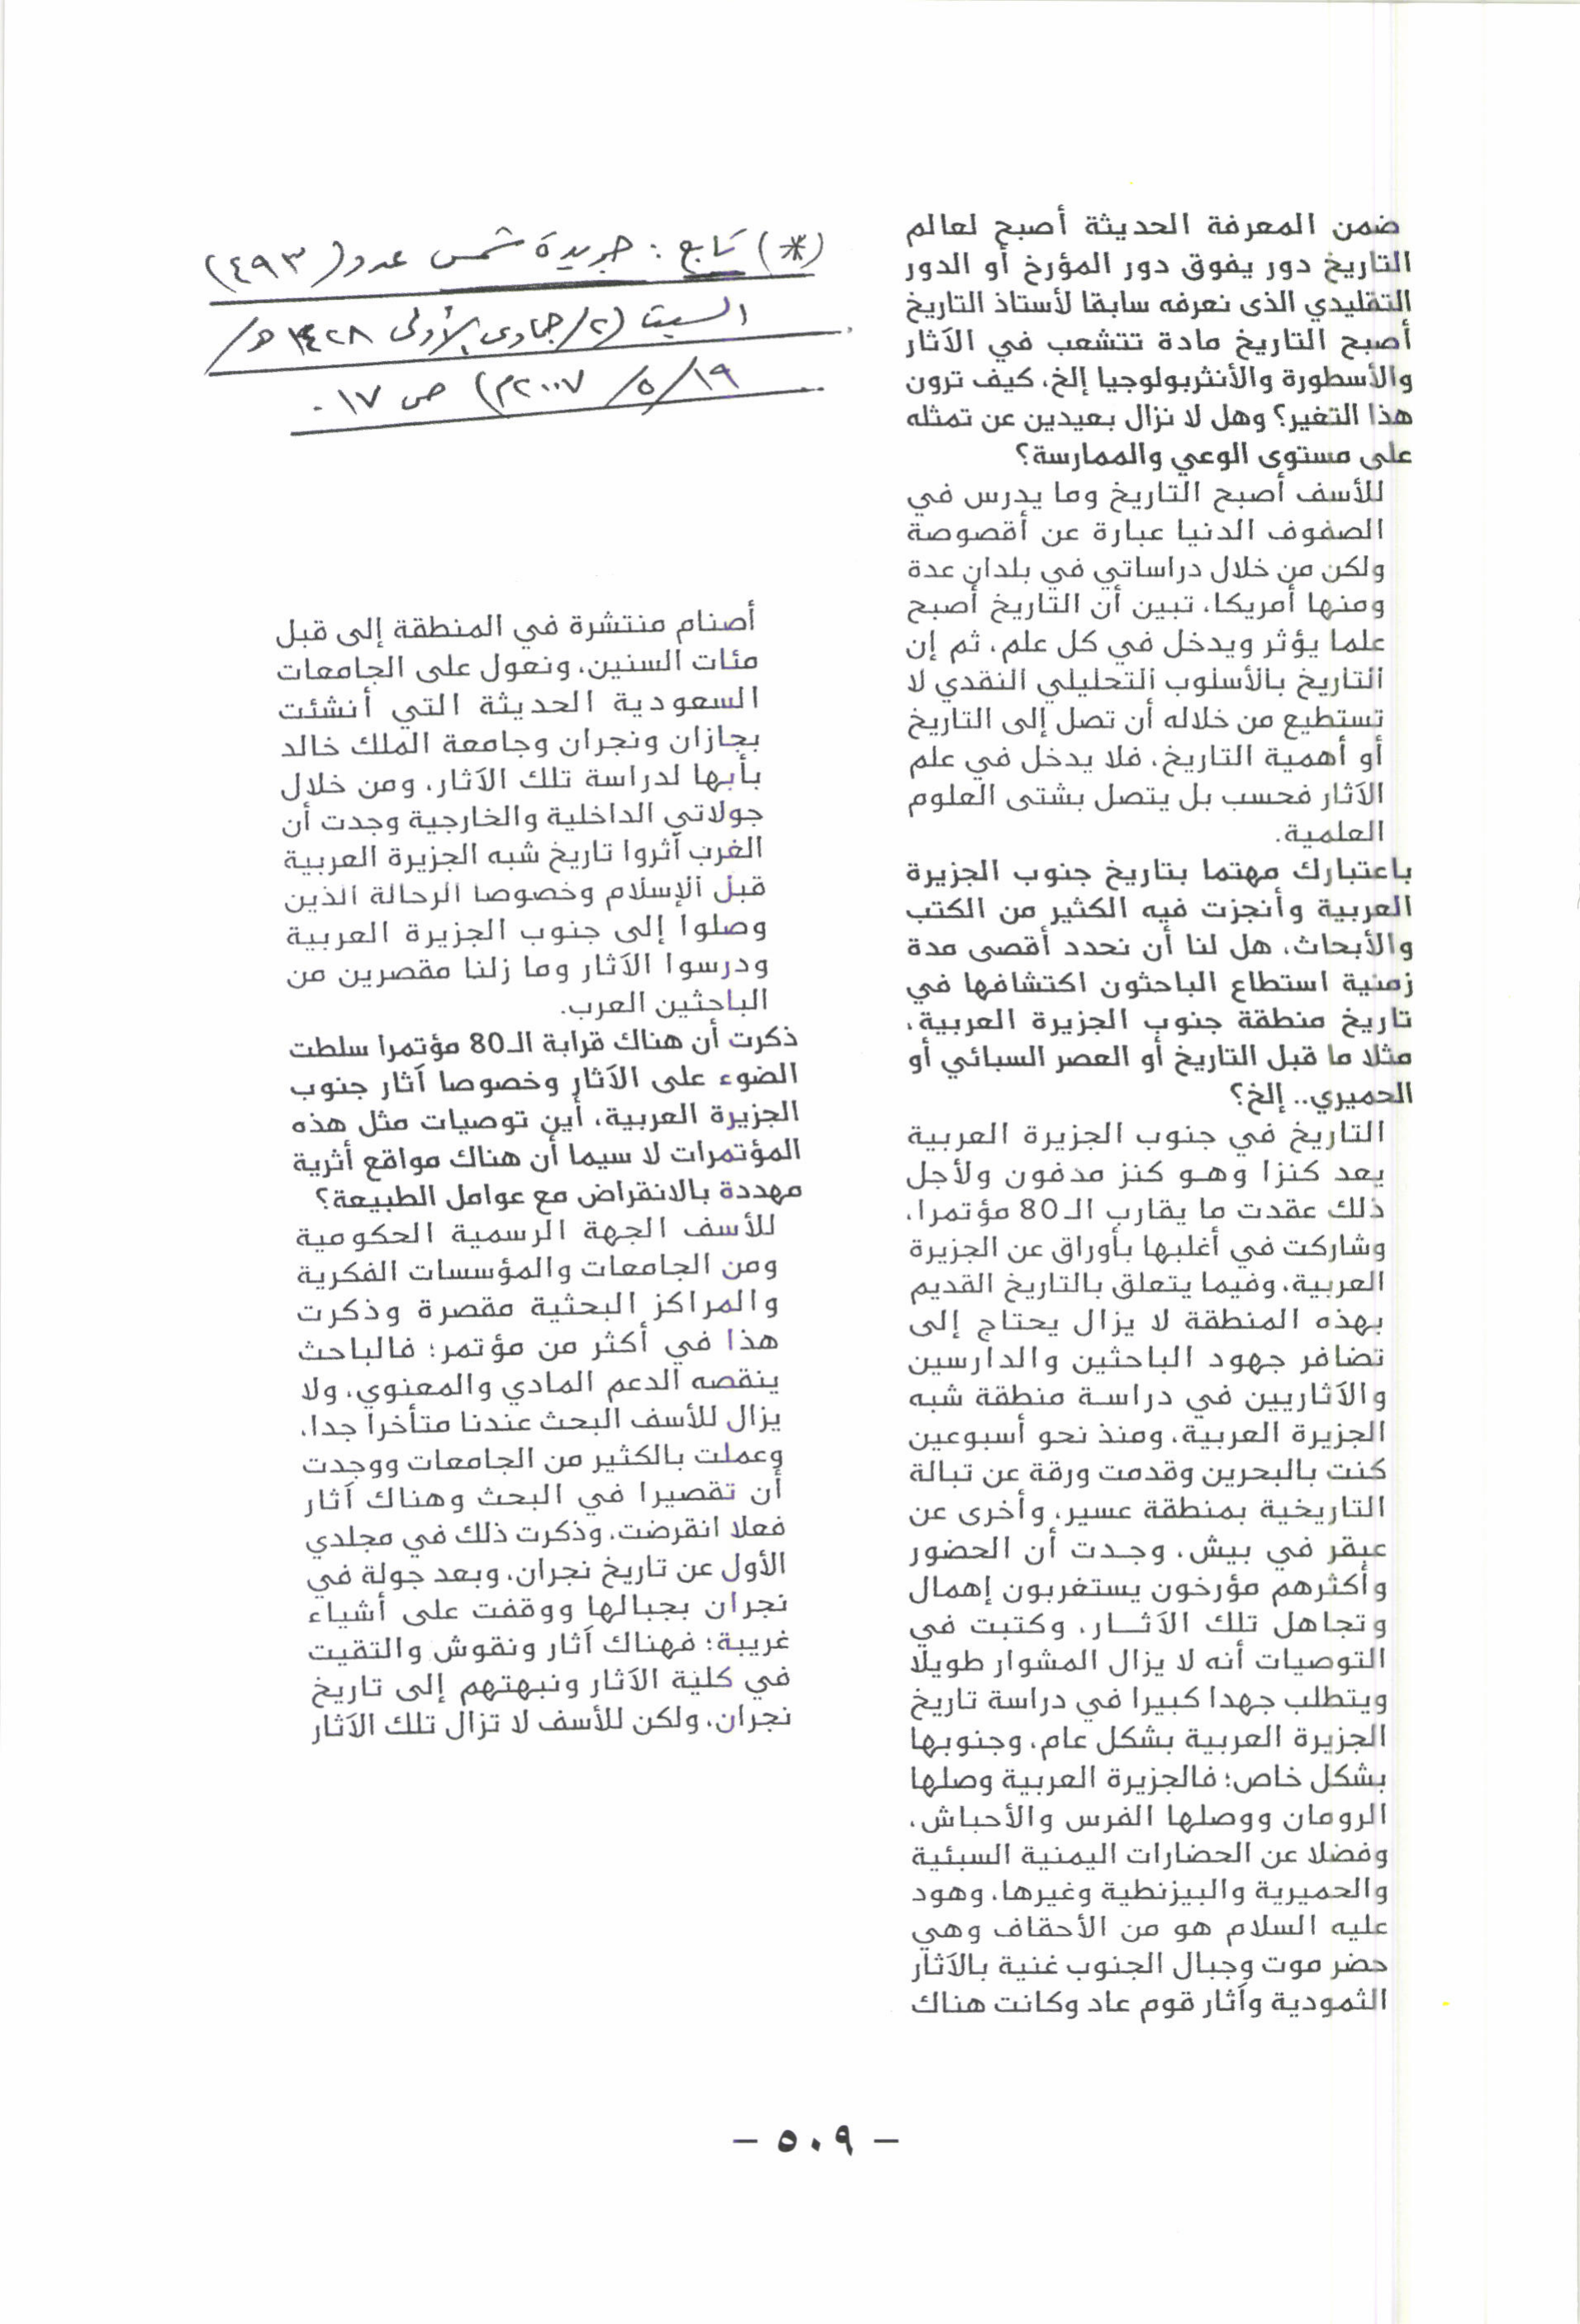 (*) تابع : جريدة شمس عدد (٤٩٣)
السبت (٢/جمادى الأولى ١٤٢٨هـ/
١٩/٥/٢٠٠٧م) ص ١٧.
ضمن المعرفة الحديثة أصبح لعالم
التاريخ دور يفوق دور المؤرخ أو الدور
التقليدي الذى نعرفه سابقا لأستاذ التاريخ
أصبح التاريخ مادة تتشعب في الآثار
والأسطورة والأنثربولوجيا إلخ، كيف ترون
هذا التغير؟ وهل لا نزال بعيدين عن تمثله
على مستوى الوعي والممارسة؟
للأسف أصبح التاريخ وما يدرس في
الصفوف الدنيا عبارة عن أقصوصة
ولكن من خلال دراساتي في بلدان عدة
ومنها أمريكا، تبين أن التاريخ أصبح
علما يؤثر ويدخل في كل علم، ثم إن
التاريخ بالأسلوب التحليلي النقدي لا
تستطيع من خلاله أن تصل إلى التاريخ
أو أهمية التاريخ، فلا يدخل في علم
الآثار فحسب بل يتصل بشتى العلوم
العلمية.
باعتبارك مهتما بتاريخ جنوب الجزيرة
العربية وأنجزت فيه الكثير من الكتب
والأبحاث، هل لنا أن نحدد أقصى مدة
زمنية استطاع الباحثون اكتشافها في
تاريخ منطقة جنوب الجزيرة العربية،
مثلا ما قبل التاريخ أو العصر السبائي أو
الحميري.. إلخ؟
التاريخ في جنوب الجزيرة العربية
يعد كنزا وهو كنز مدفون ولأجل
ذلك عقدت ما يقارب الـ80 مؤتمرا،
وشاركت في أغلبها بأوراق عن الجزيرة
العربية، وفيما يتعلق بالتاريخ القديم
بهذه المنطقة لا يزال يحتاج إلى
تضافر جهود الباحثين والدارسين
والآثاريين في دراسة منطقة شبه
الجزيرة العربية، ومنذ نحو أسبوعين
كنت بالبحرين وقدمت ورقة عن تبالة
التاريخية بمنطقة عسير، وأخرى عن
عبقر في بيش، وجدت أن الحضور
وأكثرهم مؤرخون يستغربون إهمال
وتجاهل تلك الآثار، وكتبت في
التوصيات أنه لا يزال المشوار طويلا
ويتطلب جهدا كبيرا في دراسة تاريخ
الجزيرة العربية بشكل عام، وجنوبها
بشكل خاص؛ فالجزيرة العربية وصلها
الرومان ووصلها الفرس والأحباش،
وفضلا عن الحضارات اليمنية السبئية
والحميرية والبيزنطية وغيرها، وهود
عليه السلام هو من الأحقاف وهي
حضر موت وجبال الجنوب غنية بالآثار
الثمودية وآثار قوم عاد وكانت هناك
أصنام منتشرة في المنطقة إلى قبل
مئات السنين، ونعول على الجامعات
السعودية الحديثة التي أنشئت
بجازان ونجران وجامعة الملك خالد
بأبها لدراسة تلك الآثار، ومن خلال
جولاتي الداخلية والخارجية وجدت أن
الغرب أثروا تاريخ شبه الجزيرة العربية
قبل الإسلام وخصوصا الرحالة الذين
وصلوا إلى جنوب الجزيرة العربية
ودرسوا الآثار وما زلنا مقصرين من
الباحثين العرب.
ذكرت أن هناك قرابة الـ80 مؤتمرا سلطت
الضوء على الآثار وخصوصا آثار جنوب
الجزيرة العربية، أين توصيات مثل هذه
المؤتمرات لا سيما أن هناك مواقع أثرية
مهددة بالانقراض مع عوامل الطبيعة؟
للأسف الجهة الرسمية الحكومية
ومن الجامعات والمؤسسات الفكرية
والمراكز البحثية مقصرة وذكرت
هذا في أكثر من مؤتمر؛ فالباحث
ينقصه الدعم المادي والمعنوي، ولا
يزال للأسف البحث عندنا متأخرا جدا،
وعملت بالكثير من الجامعات ووجدت
أن تقصيرا في البحث وهناك آثار
فعلا انقرضت، وذكرت ذلك في مجلدي
الأول عن تاريخ نجران، وبعد جولة في
نجران بجبالها ووقفت على أشياء
غريبة؛ فهناك آثار ونقوش والتقيت
في كلية الآثار ونبهتهم إلى تاريخ
نجران، ولكن للأسف لا تزال تلك الآثار
- ٥٠٩ -